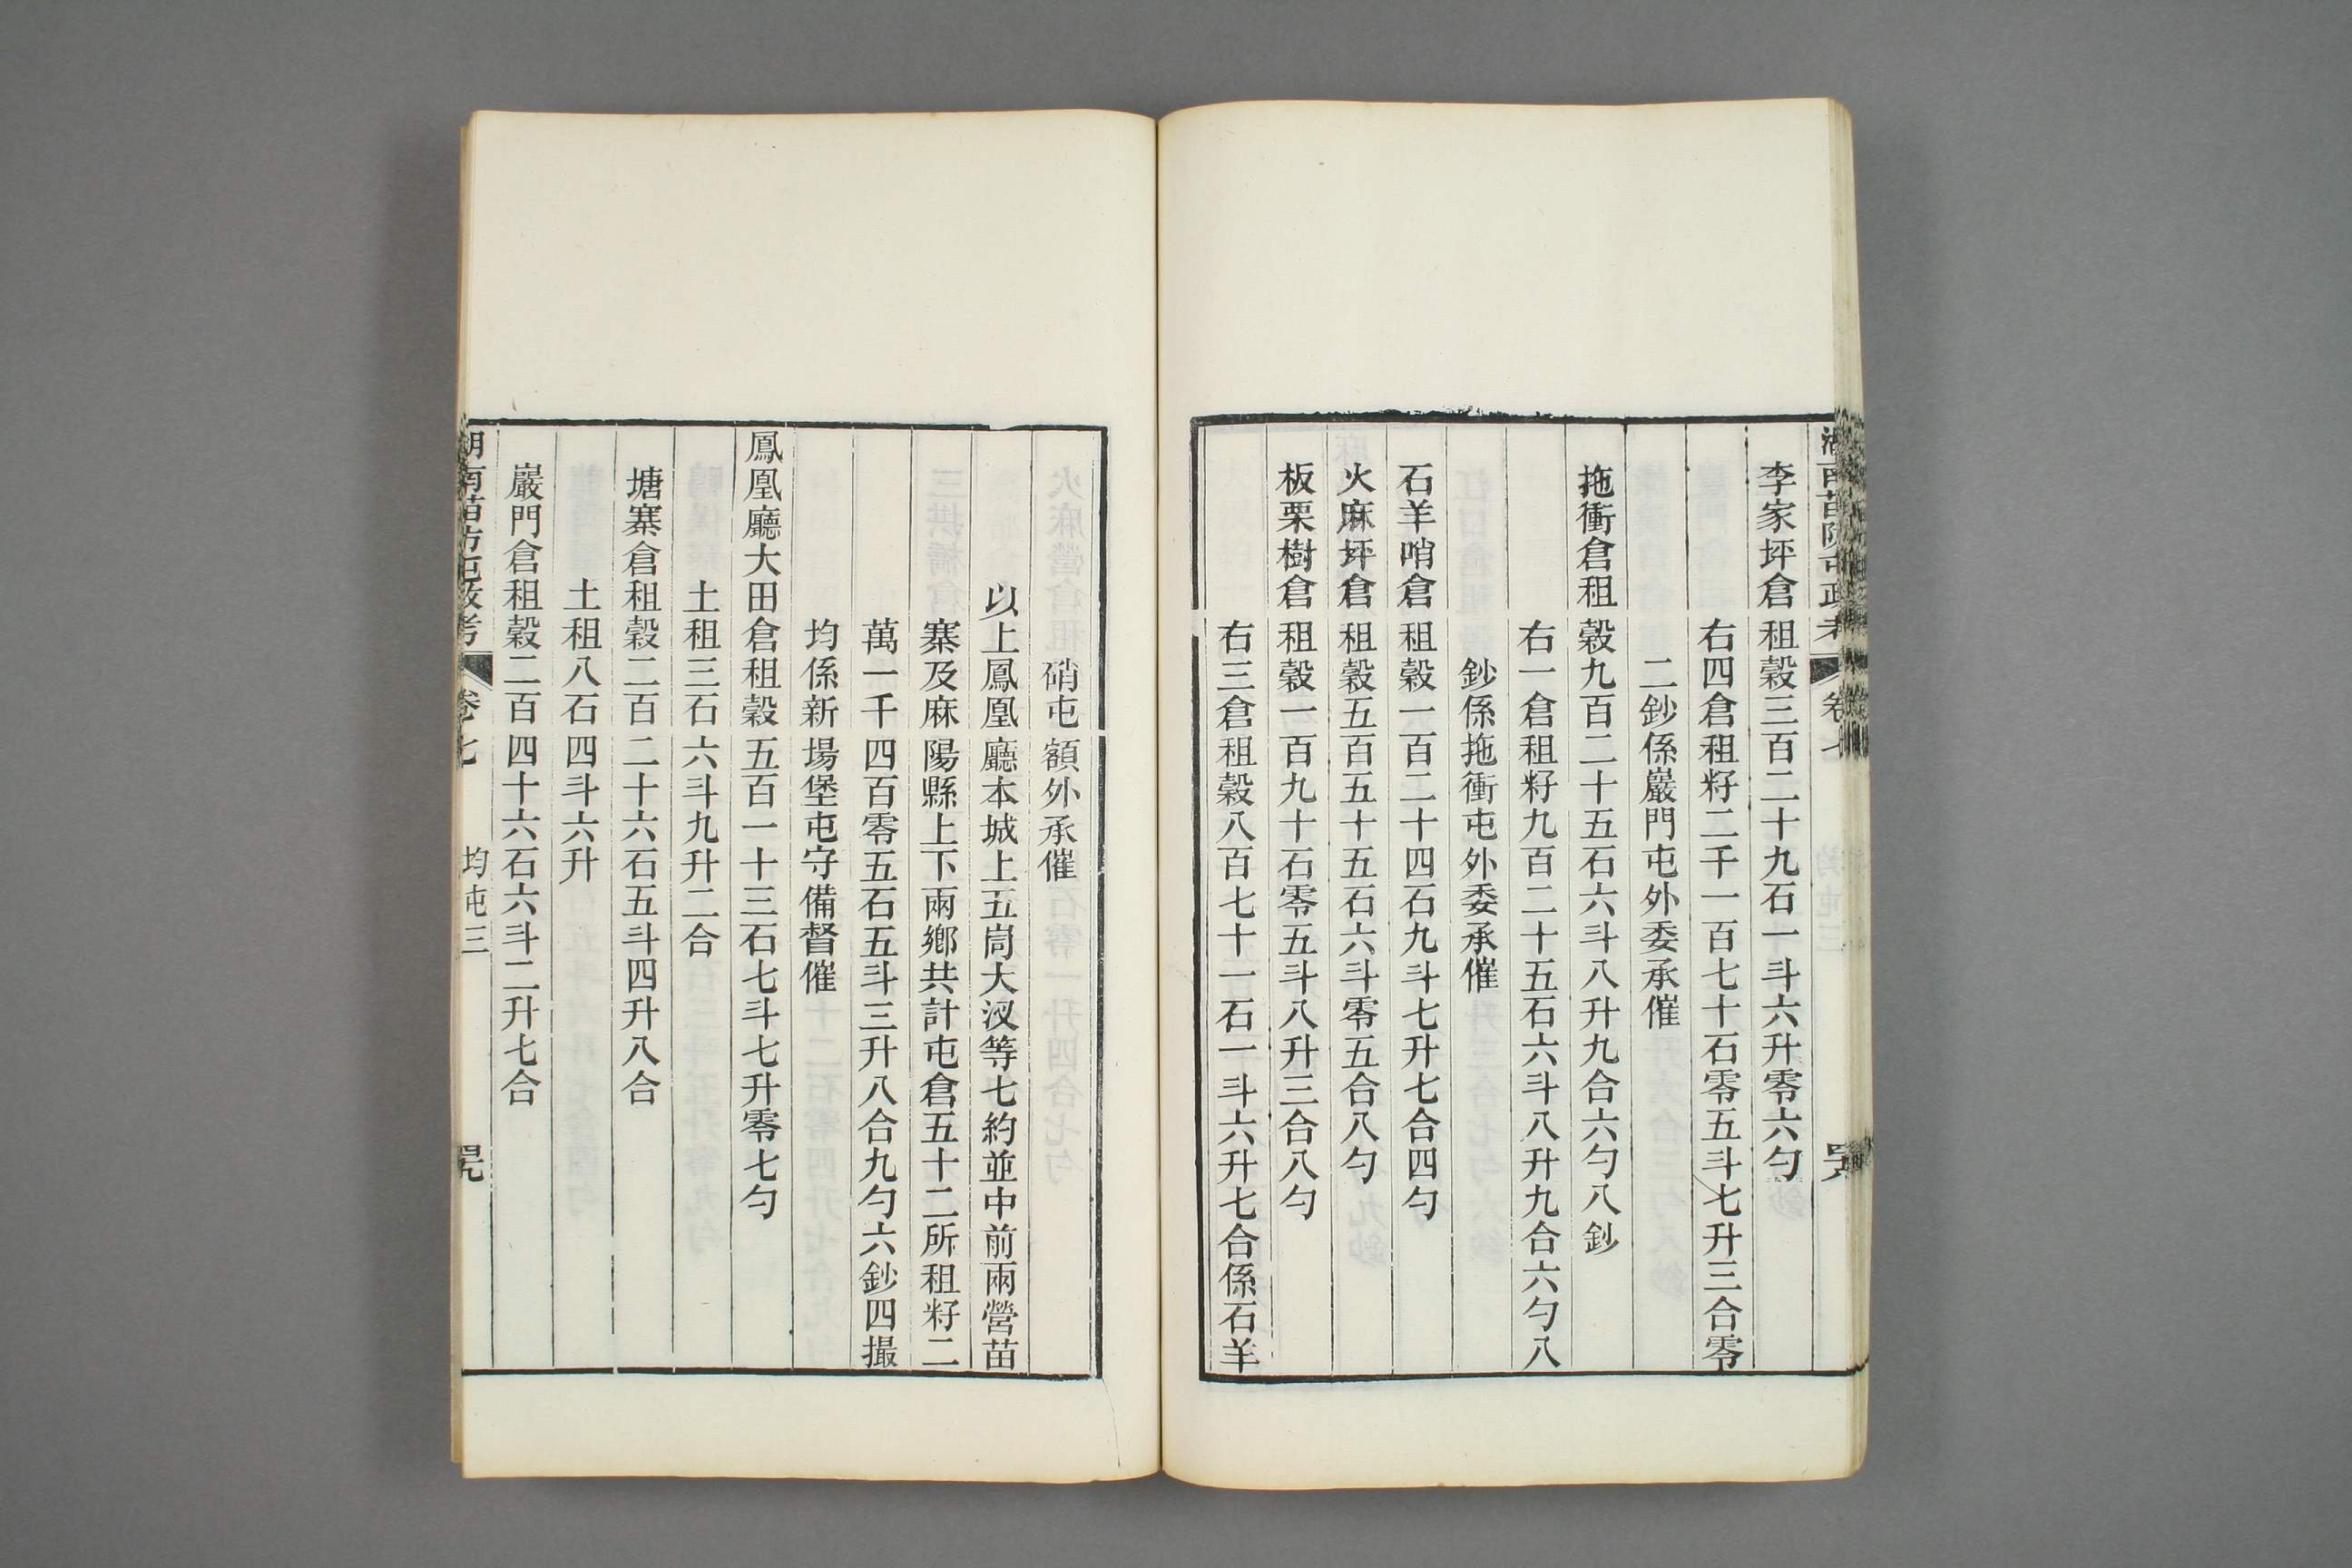 李家坪倉租穀三百二十九石一斗六升零六勺
右四倉租籽二千一百七十石零五斗七升三合零
二鈔係巖門屯外委承催
拖衝倉租穀九百二十五石六斗八升九合六勺八鈔
右一倉租籽九百二十五石六斗八升九合六勺八
鈔係拖衝屯外委承催
石羊哨倉租穀一百二十四石九斗七升七合四勺
火麻坪倉租穀五百五十五石六斗零五合八勺
板栗樹倉租穀一百九十石零五斗八升三合八勺
右三倉租穀八百七十一石一斗六升七合係石羊
硝屯額外承催
以上鳳凰廳本城上五峝大汊等七約並中前兩營苗
寨及麻陽縣上下兩鄉共計屯倉五十二所租籽二
萬一千四百零五石五斗三升八合九勺六鈔四撮
均係新場堡屯守備督催
鳳凰廳大田倉租穀五百一十三石七斗七升零七勺
土租三石六斗九升二合
塘寨倉租穀二百二十六石五斗四升八合
土租八石四斗六升
巖門倉租穀二百四十六石六斗二升七合
湖南苗防屯政考 卷七 均屯三